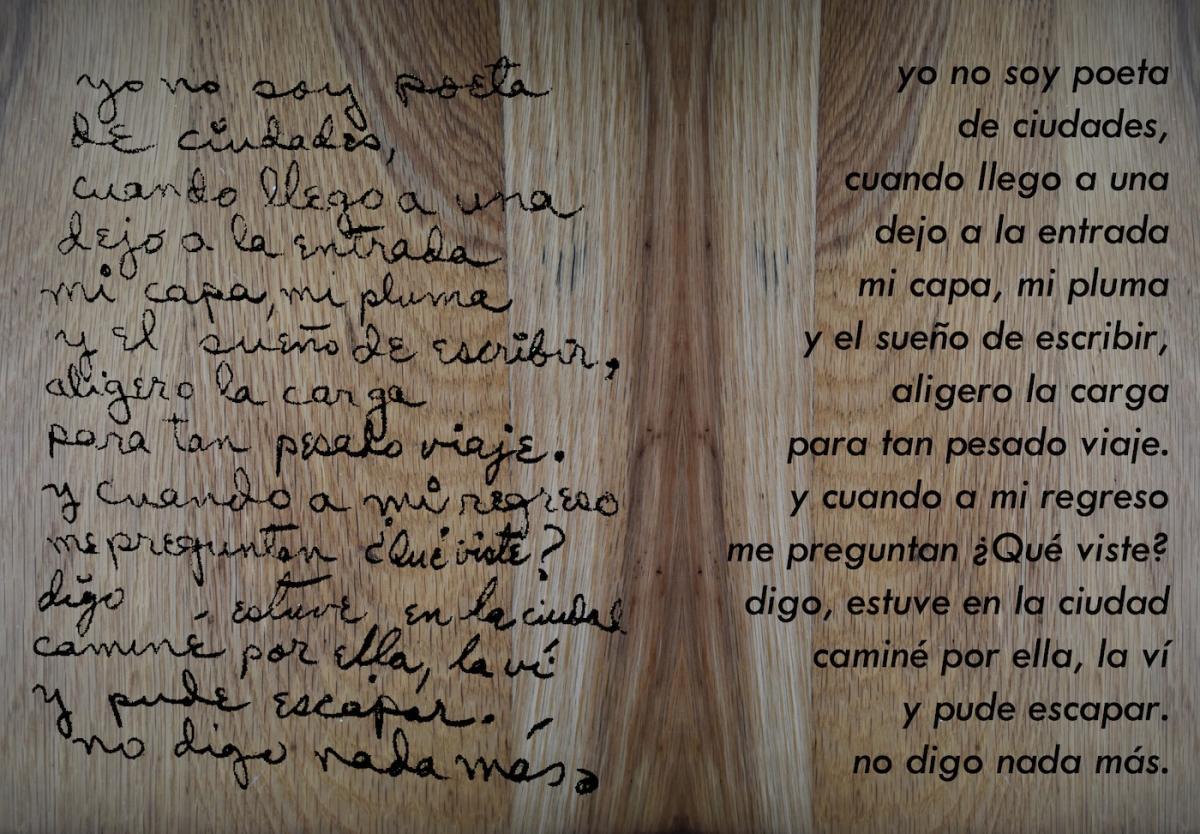 yo no soy poeta
de ciudades,
cuando llego a una
dejo a la entrada
mi capa, mi pluma
y el sueño de escribir,
aligero la carga
para tan pesado viaje.
y cuando a mi regreso
me preguntan ¿Qué viste?
digo - estuve en la ciudad
caminé por ella, la ví
y pude escapar.
no digo nada más.
yo no soy poeta
de ciudades,
cuando llego a una
dejo a la entrada
mi capa, mi pluma
y el sueño de escribir,
aligero la carga
para tan pesado viaje.
y cuando a mi regreso
me preguntan ¿Qué viste?
digo, estuve en la ciudad
caminé por ella, la ví
y pude escapar.
no digo nada más.